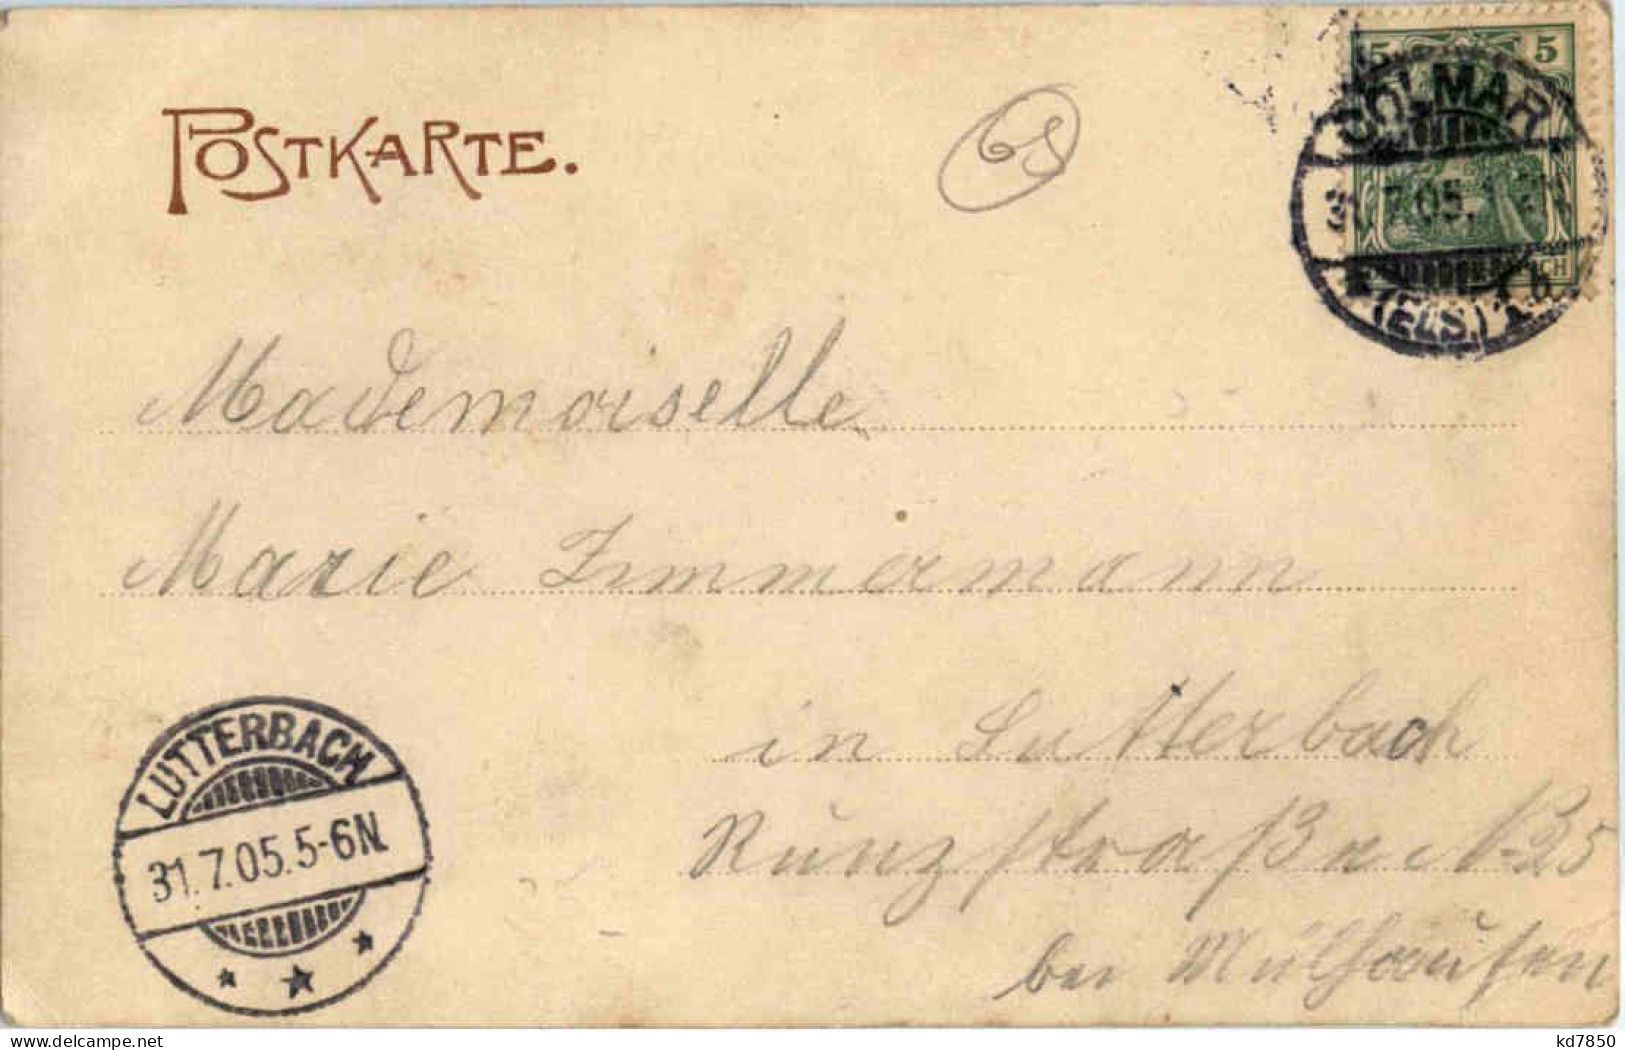 POSTKARTE.
68
5 5
COLMAR
7.05.
(ELS.)
Mademoiselle
Marie Zimmermann
in Lutterbach
Runzstraße N 25
bei Mülhausen
LUTTERBACH
31.7.05.5-6N.
kd7850